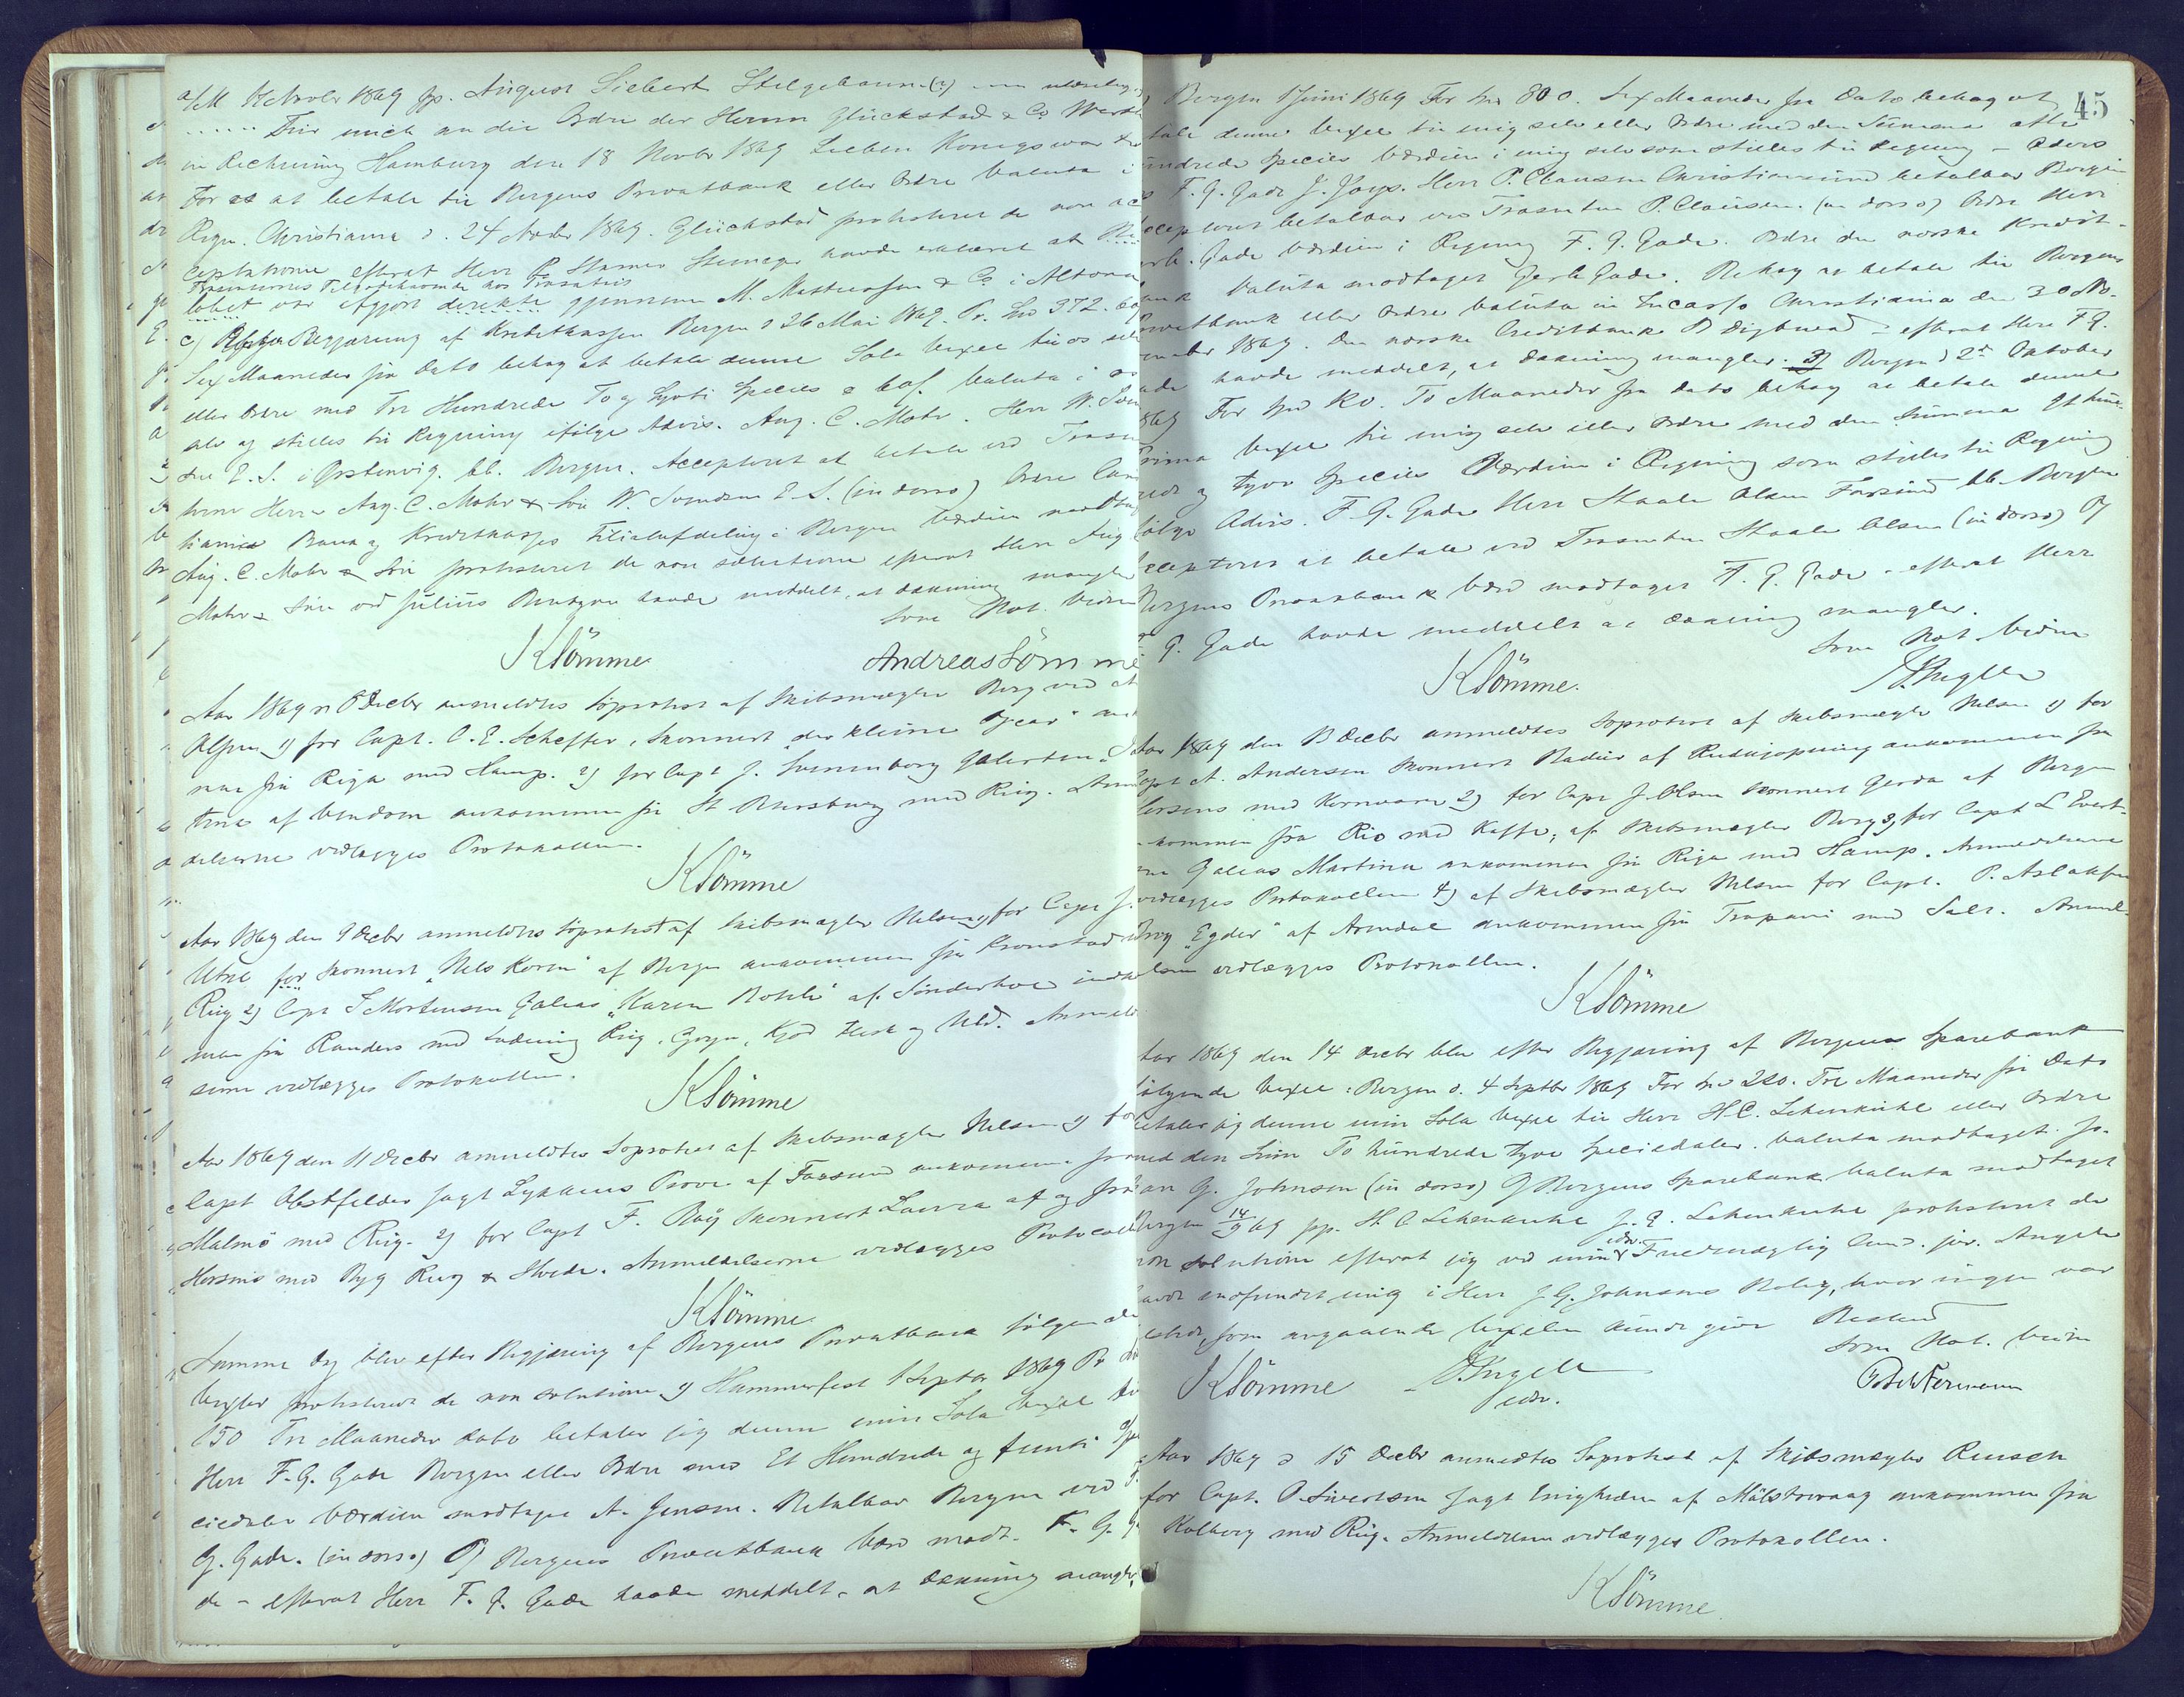 a/M 18 Novbr 1869 pp. August Siebert Stelgebaum (?)
..... Für mich an die Ordre der Herren Glückstad & Co Werth
in Rechnung Hamburg den 18 Novbr 1869 Lieben Königswar
For at betale til Bergens Privatbank eller Ordre Valuta i
Regn. Christiania d. 24 Novbr 1869. Glückstad protesteret de non ac
ceptatione efterat Herr P. Stamer Steneger havde erklæret at
Trassentens Tilgodehavende hos Trassatus
løbet var afgjort direkte gjennem M. Mathiessen & Co i Altona
c) Efter Begjæring af Kreditkassen Bergen d 26 Mai 1869. Pr. Spd 372. 60
Sex Maaneder fra Dato behag at betale denne Sola Vexel til os selv
eller Ordre med Tre Hundrede To og Sytti Species & 60ß. Valuta i os
selv og stilles til Regning ifølge Advis. Aug. C. Mohr. Herr W. Sven
dsen E. S. i Ørstenvig. bb. Bergen. Accepteret at betale ved Trassen
terne Herrer Aug. C. Mohr & Søn W. Svendsen E. S. (in dorso) Ordre Chris
tiania Bank og Kreditkasses Filialafdeling i Bergen Værdien modtag
Aug. C. Mohr & Søn protesteret de non solutione efterat Herr Aug
Mohr & Søn ved Julius Bentzon havde meddelt, at dækning mangler
Som Not. Vidne
KSömme
Andreas Sömme
Aar 1869 d 8 Decbr anmeldtes Søprotest af Skibsmægler Berg ved
Olsen 1) for Capt. C. E. Scheffer, Skonnert "der kleine Oscar" an
men fra Riga med Hamp. 2) for Capt J. Svenenborg Galeasen
trine af Vindom ankommen fra St Petersburg med Rug. Anm
delserne vedlægges Protokollen.
KSömme
Aar 1869 den 9 Decbr anmeldtes Søprotest af Skibsmægler Nelsen 1) for Capt J.
Utne for Skonnert "Nils Korin" af Bergen ankommen fra Kronstad
Rug 2) Capt T Mortensen Galeas "Karen Bothile" af Sønderhoe indkom
men fra Randers med Ladning Rug, Gryn, Kjød Flesk og Uld. Anmeld
serne vedlægges Protokollen.
KSömme
Aar 1869 den 11 Decbr anmeldtes Søprotest af Skibsmægler Nelsen 1) for
Capt Obstfelder Jagt Lykkens Prøve af Farsund ankommen fra
Malmö med Rug. 2) for Capt F. Røÿ Skonnert Laura af og fra
Horsens med Byg Rug & Hvede. Anmeldelserne vedlægges Protocollen
KSömme
Samme Dag blev efter Begjæring af Bergens Privatbank følgende
Vexler protesteret de non solutione 1) Hammerfest 1 Septbr 1869 Pr
150 Tre Maaneder dato betaler jeg denne min Sola Vexel til
Herr F. G. Gade Bergen eller Ordre med Et Hundrede og femti Spe
ciedaler Værdien modtaget A. Jensen. Betalbar Bergen ved F.
G. Gade. (in dorso) Til Bergens Privatbank Værd. modt. F. G. Ga
de - efterat Herr F. G. Gade havde meddelt, at Dækning mangler,
45
2) Bergen 1 Juni 1869 For Spd 800. Sex Maaneder fra Dato behag at
tale denne Vexel til mig selv eller Ordre med den Summa otte
undrede Species Værdien i mig selv som stilles til Regning - Advis
F. G. Gade J. Joys. Herr P. Clausen Christiansund betalbar Bergen
cepteret betalbar ved Trassenten P. Clausen. (in dorso) Ordre Herr
erh. Gade Værdien i Regning F. G. Gade. Ordre den norske Kredit-
ank Valuta modtaget Gerh Gade. Behag at betale til Bergens
rivatbank eller Ordre Valuta in Incasso Christiania den 30 No-
vember 1869. Den norske Creditbank B Dybwad - efterat Herr F. G.
ade havde meddelt, at Dækning mangler. 3) Bergen d 2den Oktober
1869 For Spd 120. To Maaneder fra dato behag at betale denne
rima Vexel til mig selv eller Ordre med den Summa Et hun-
red og tyve Species Værdien i Regning som stilles til Regning
følge Advis. F. G. Gade Herr Staale Olsen Farsund bb. Bergen
ccepteret at betale ved Trassenten Staale Olsen (in dorso) Til
Bergens Privatbank Værd modtaget F. G. Gade - efterat Herr
F. G. Gade havde meddelt at Dækning mangler.
Som Not. Vidne
KSömme.
JAngell
Aar 1869 den 13 Decbr anmeldtes Søprotest af Skibsmægler Nelsen 1) for
Capt A. Andersen Skonnert Radiur af Rudkjøpning ankommen fra
Horsens med Kornvarer 2) for Capt J. Olsen Skonnert Gerda af Bergen
kommen fra Rio med Kaffe; af Skibsmægler Berg 3) for Capt L Evert-
Galeas Martina ankommen fra Riga med Hamp. Anmeldelserne
vedlægges Protokollen 4) af Skibsmægler Nelsen for Capt. P. Aslaksen
Brig "Egder" af Arendal ankommen fra Trapani med Salt. Anmel-
elsen vedlægges Protokollen.
KSömme
Aar 1869 den 14 Decbr blev efter Begjæring af Bergens Sparebank
følgende Vexel: Bergen d. 4 Septbr 1869 For Spd 220. Tre Maaneder fra Dato
betaler jeg denne min Sola Vexel til Herr H. C. Lehmkuhl eller Ordre
med den Sum To hundrede tyve Speciedaler. Valuta modtaget. Jo-
an G. Johnsen (in dorso) Til Bergens Sparebank Valuta modtaget
Bergen 14/9 69 pp. H. C Lehmkuhl J. E. Lehmkuhl protesteret de
non solutione efterat jeg ved min edsv. Fuldmægtig Cand. jur. Angell
havde indfundet mig i Herr J. G. Johnsens Bolig, hvor ingen var
tilstede, som angaaende Vexelen kunde give Besked
Som Not. Vidne
KSömme
JAngell
edsv.
Aar 1869 d 15 Decbr anmeldtes Søprotest af Skibsmægler Reusch
for Capt. P. Sivertsen Jagt Enigheden af Målstrevaag ankommen fra
Kolberg med Rug. Anmeldelsen vedlægges Protokollen.
KSömme.